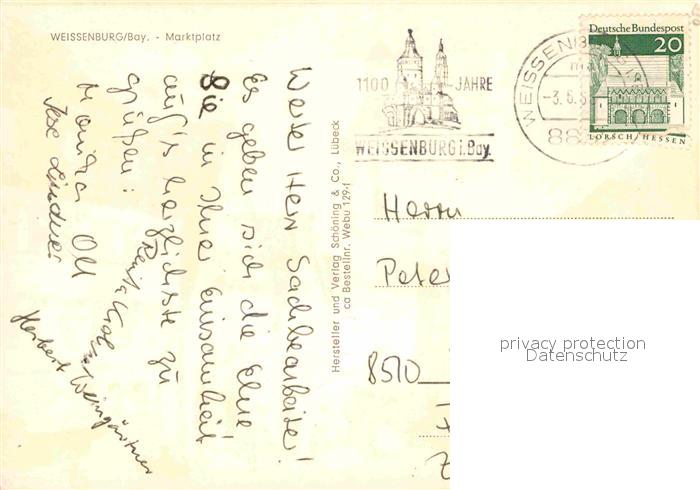 WEISSENBURG/Bay. - Marktplatz
Werter Herr Sachbearbeiter!
Es geben sich die Ehre
Sie in Ihrer Einsamheit
auf's herzlichste zu
grüßen:
Monika Oll
Lindner
Herbert Weingärtner
Hersteller und Verlag Schöning & Co., Lübeck
ca Bestellnr. Webu 129-f
1100 JAHRE
WEISSENBURG i. Bay.
WEISSENB
-3.6.
88
Deutsche Bundespost
20
LORSCH/HESSEN
Herrn
Peter
8510
privacy protection
Datenschutz